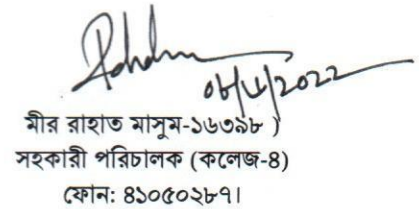 মীর রাহাত মাসুম-১৬৩৯৮ )
সহকারী পরিচালক (কলেজ-4)
ফোন: ৪১০৫০২৮৭।